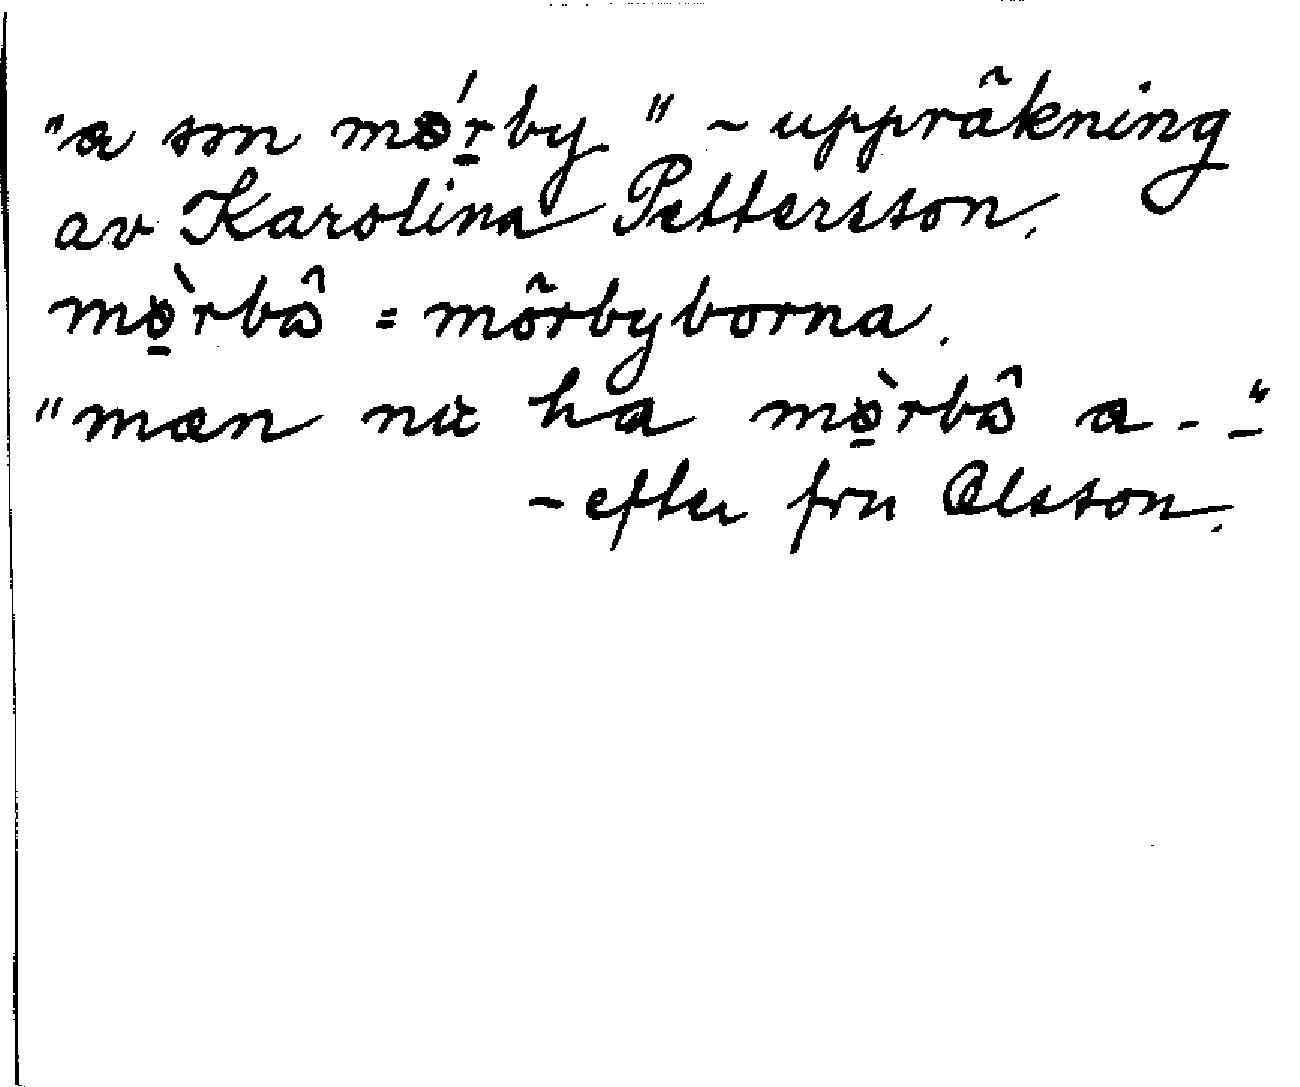 "a som mǿrby" - uppräkning
av Karolina Pettersson.
mö̀rbô = mörbyborna.
"mæn nu ha mö̀rbô a - -"
- efter fru Olsson.